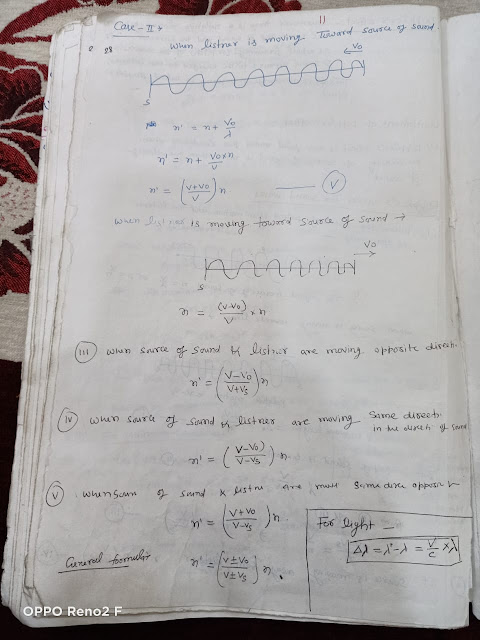 11
Case-II →
when listner is moving Toward source of sound
2 28
Vo
S
n' = n + Vo/λ
n' = n + Vo×n/v
n' = (V+Vo/V) n —— (V)
when listner is moving toward source of sound →
Vo
S
n = (V-Vo)/V × n
(III) when source of sound & listner are moving opposite directi.
n' = (V-Vo/V+Vs) n
(iv) when source of sound & listner are moving Same directi.
in the directi of sound
n' = (V-Vo/V-Vs) n
(v) when of sound & listne are same opposit
n' = (V+Vo/V-Vs) n.
For light —
Δλ = λ'-λ = V/c ×λ
General formula:
n' = (V±Vo/V±Vs) n.
OPPO Reno2 F